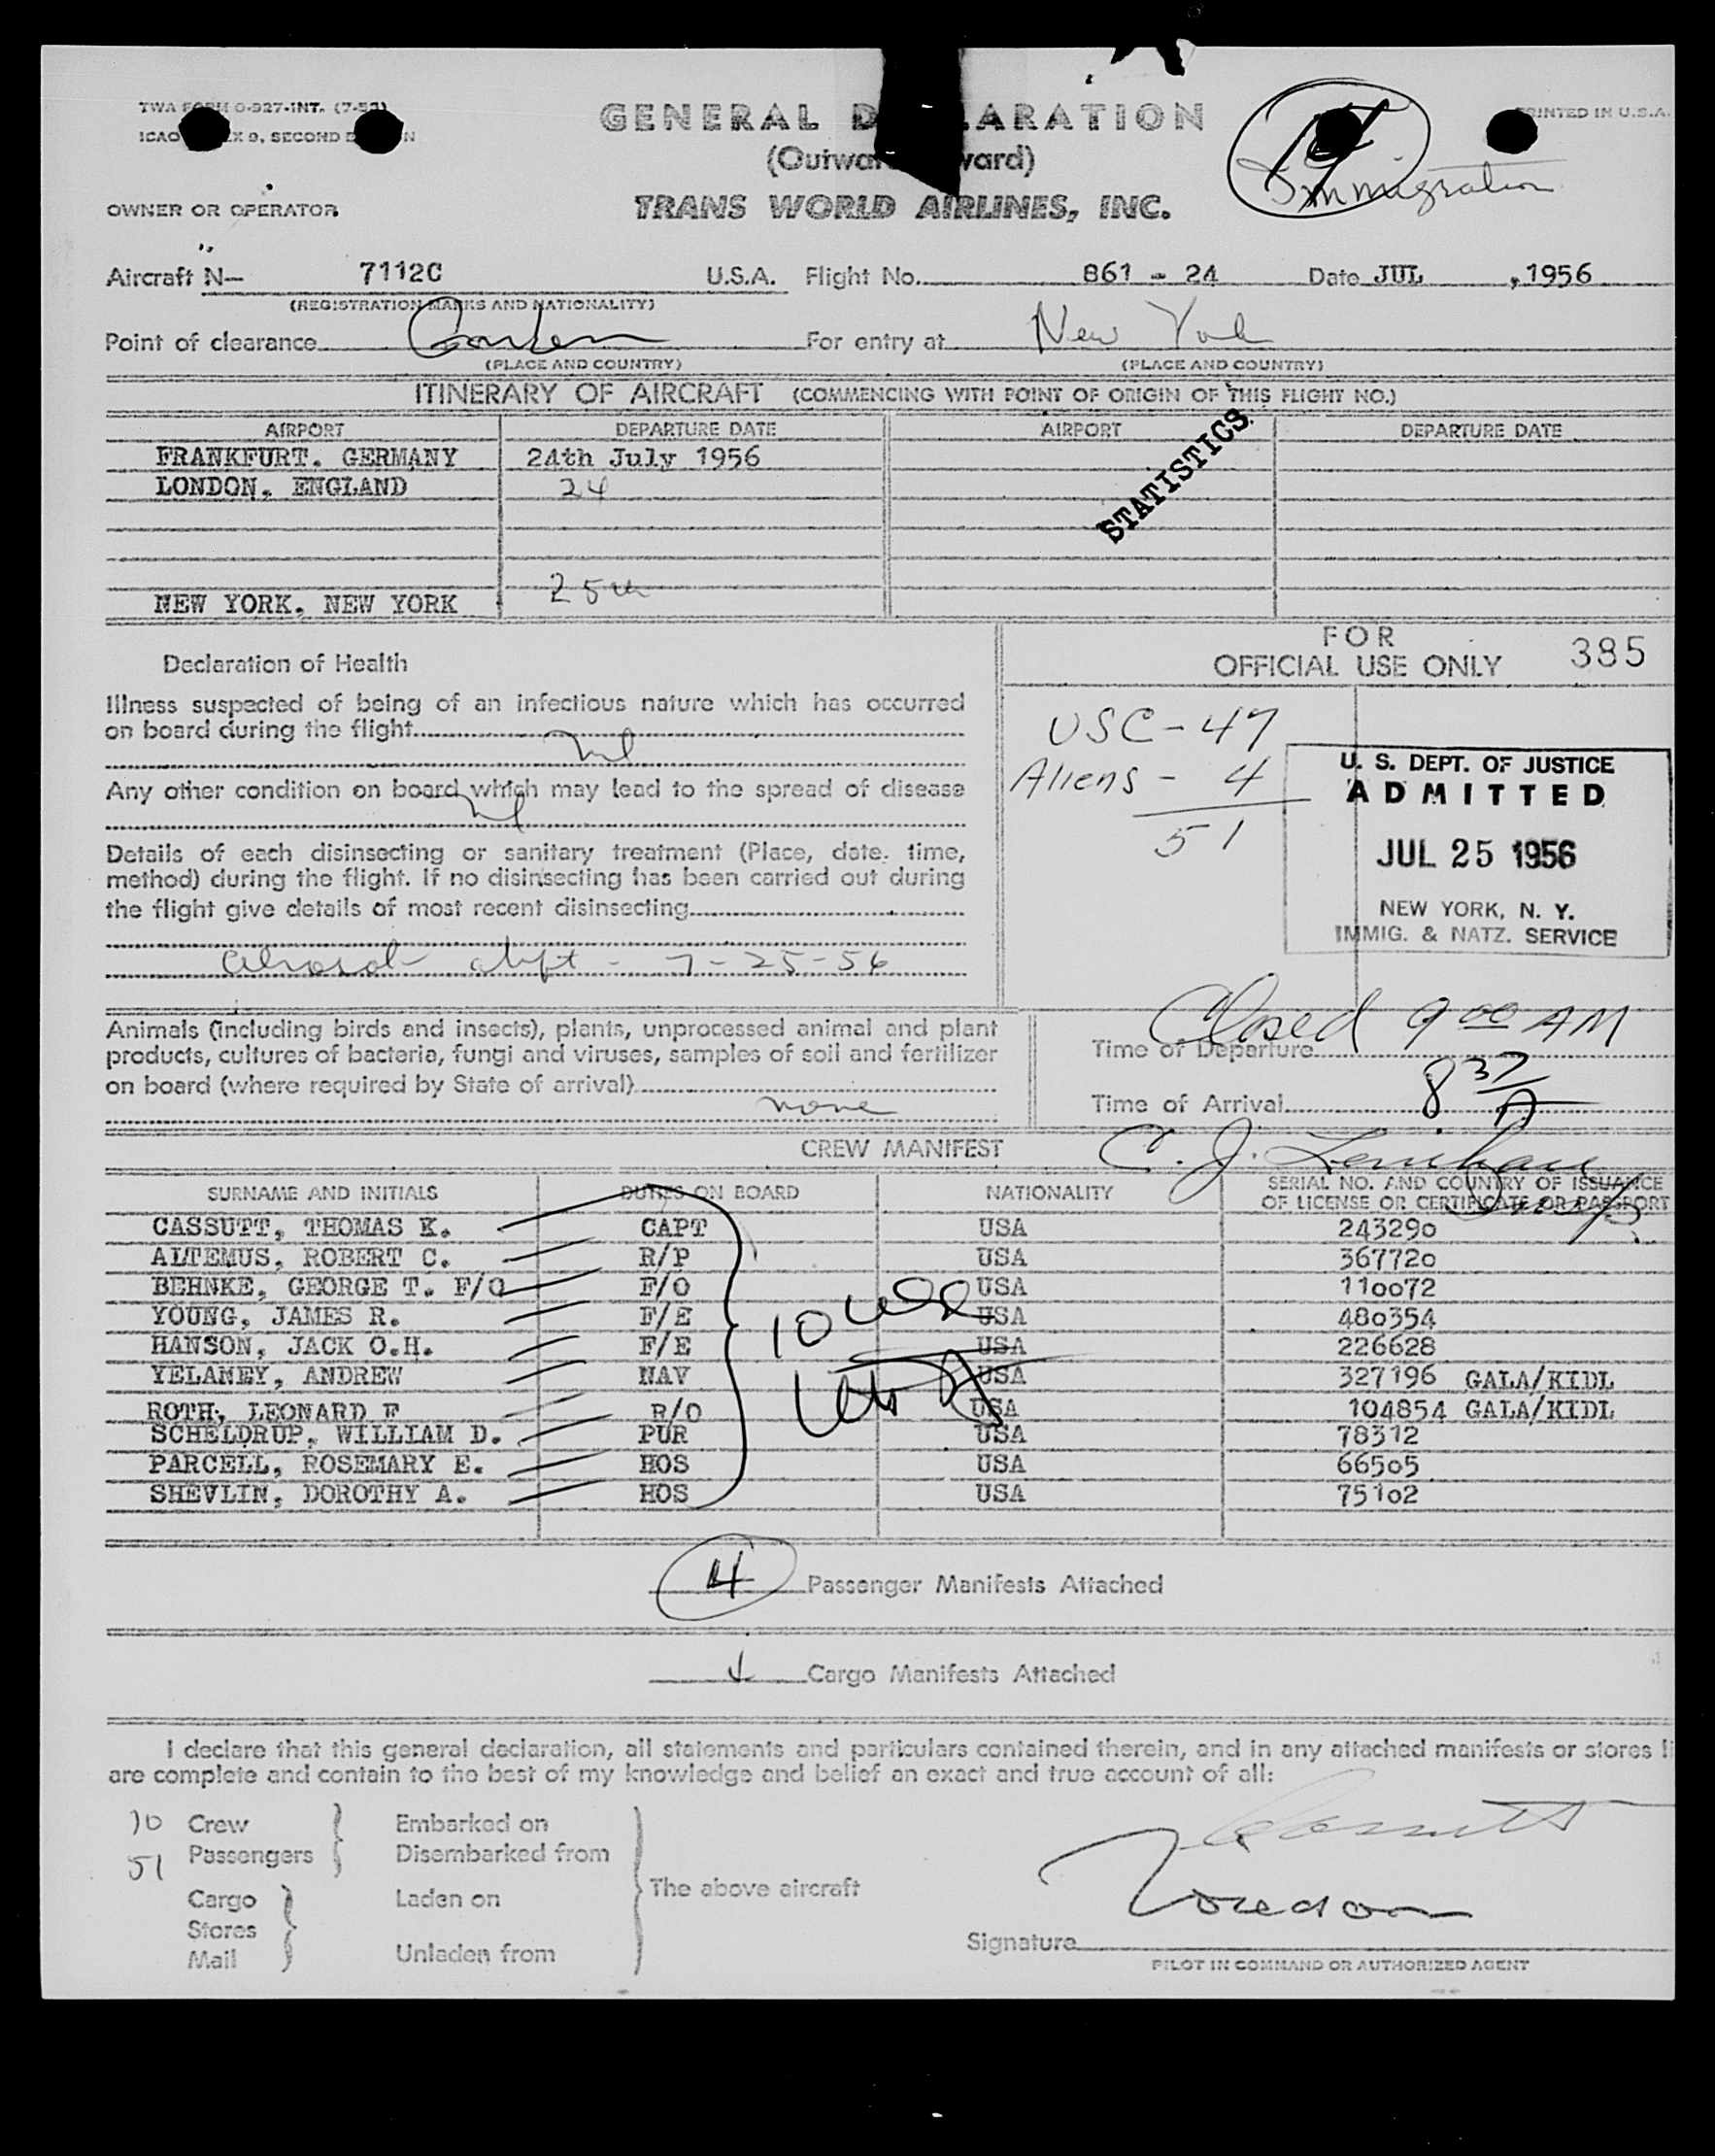 TWA FORM O-927-INT. (7-53)
PRINTED IN U.S.A.
ICAO X 9, SECOND
GENERAL D ARATION
(Outwar ward)
Immigration
OWNER OR OPERATOR
TRANS WORLD AIRLINES, INC.
Aircraft N— 7112C U.S.A. Flight No. 861 - 24 Date JUL , 1956
(REGISTRATION MARKS AND NATIONALITY)
Point of clearance For entry at New York
(PLACE AND COUNTRY) (PLACE AND COUNTRY)
ITINERARY OF AIRCRAFT (COMMENCING WITH POINT OF ORIGIN OF THIS FLIGHT NO.)
AIRPORT DEPARTURE DATE AIRPORT DEPARTURE DATE
FRANKFURT. GERMANY 24th July 1956
LONDON, ENGLAND 24
STATISTICS
NEW YORK, NEW YORK 25th
FOR
OFFICIAL USE ONLY 385
Declaration of Health
Illness suspected of being of an infectious nature which has occurred
on board during the flight
nil
Any other condition on board which may lead to the spread of disease
nil
Details of each disinsecting or sanitary treatment (Place, date, time,
method) during the flight. If no disinsecting has been carried out during
the flight give details of most recent disinsecting
7-25-56
USC - 47
Aliens - 4
51
U. S. DEPT. OF JUSTICE
ADMITTED
JUL 25 1956
NEW YORK, N. Y.
IMMIG. & NATZ. SERVICE
Animals (including birds and insects), plants, unprocessed animal and plant
products, cultures of bacteria, fungi and viruses, samples of soil and fertilizer
on board (where required by State of arrival)
none
Closed 9 00 AM
Time of Departure
Time of Arrival 8 37/A
CREW MANIFEST
C. J.
SURNAME AND INITIALS DUTIES ON BOARD NATIONALITY SERIAL NO. AND COUNTRY OF ISSUANCE
OF LICENSE OR CERTIFICATE OR PASSPORT
CASSUTT, THOMAS K. CAPT USA 243290
ALTEMUS, ROBERT C. R/P USA 367720
BEHNKE, GEORGE T. F/O F/O USA 110072
YOUNG, JAMES R. F/E USA 480354
HANSON, JACK O.H. F/E USA 226628
YELANEY, ANDREW NAV USA 327196 GALA/KIDL
ROTH, LEONARD F R/O USA 104854 GALA/KIDL
SCHELDRUP, WILLIAM D. PUR USA 78312
PARCELL, ROSEMARY E. HOS USA 66505
SHEVLIN, DOROTHY A. HOS USA 75102
10
4 Passenger Manifests Attached
Cargo Manifests Attached
I declare that this general declaration, all statements and particulars contained therein, and in any attached manifests or stores li
are complete and contain to the best of my knowledge and belief an exact and true account of all:
10 Crew Embarked on
51 Passengers Disembarked from
The above aircraft
Cargo Laden on
Stores
Mail Unladen from
Signature
PILOT IN COMMAND OR AUTHORIZED AGENT